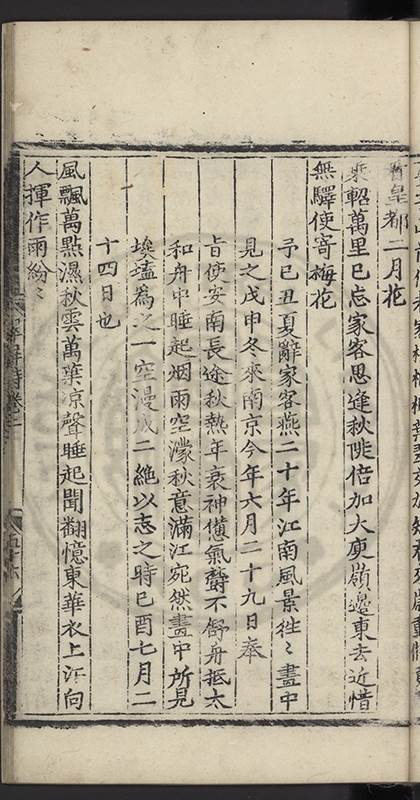 皇都二月花
乘軺萬里已忘家客思逢秋陡倍加大庾嶺邊東去近惜
無驛使寄梅花
予己丑夏辭家客燕二十年江南風景徃〻畫中
見之戊申冬來南京今年六月二十九日奉
旨使安南長途秋熱年衰神憊氣鬱不舒舟抵太
和舟中睡起烟雨空濛秋意滿江宛然畫中所見
埃𡏖為之一空漫成二絶以志之時己酉七月二
十四日也
風飄萬點濕秋雲萬葉凉聲睡起聞翻憶東華衣上汗向
人揮作雨紛〻